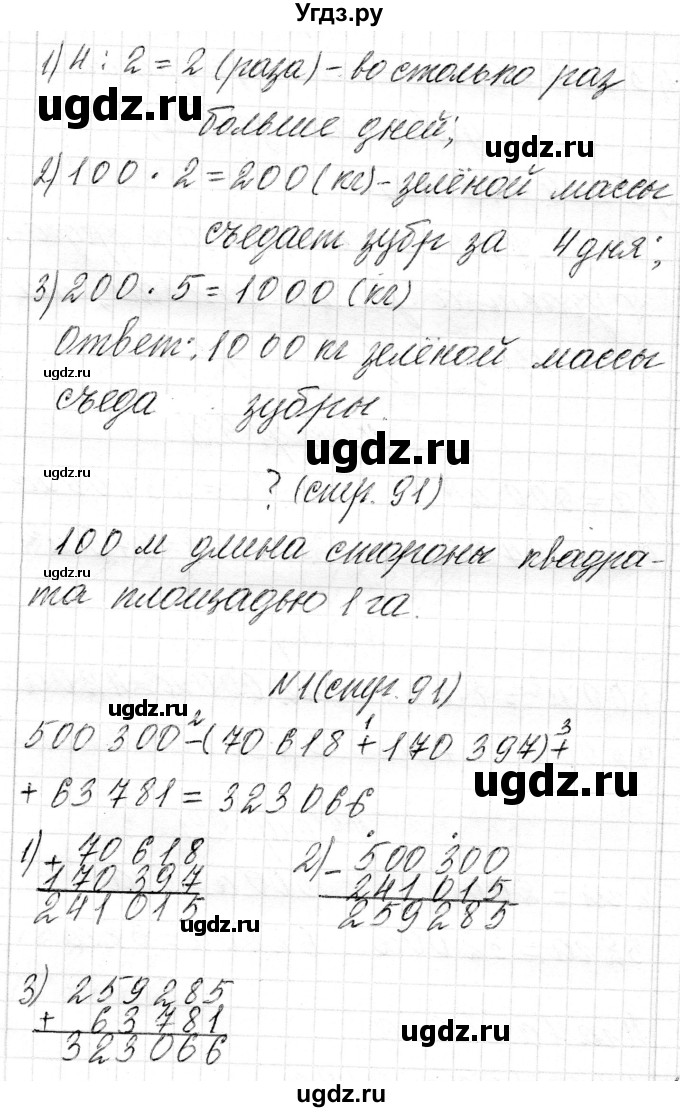 Угдз.ру
1) 4 : 2 = 2 (раза) - во столько раз
больше дней;
2) 100 · 2 = 200 (кг) - зелёной массы
съедает зубр за 4 дня;
3) 200 · 5 = 1000 (кг)
Ответ: 1000 кг зелёной массы
съеда зубры.
? (стр. 91)
100 м длина стороны квадра-
та площадью 1 га.
№1 (стр. 91)
2 1 3
500 300 - (70 618 + 170 397) +
+ 63 781 = 323 066
1) + 70 618
170 397
241 015
2) - 500 300
241 015
259 285
3) 259 285
+ 63 781
323 066
ugdz.ru
ugdz.ru
ugdz.ru
ugdz.ru
ugdz.ru
ugdz.ru
ugdz.ru
ugdz.ru
ugdz.ru
ugdz.ru
ugdz.ru
ugdz.ru
ugdz.ru